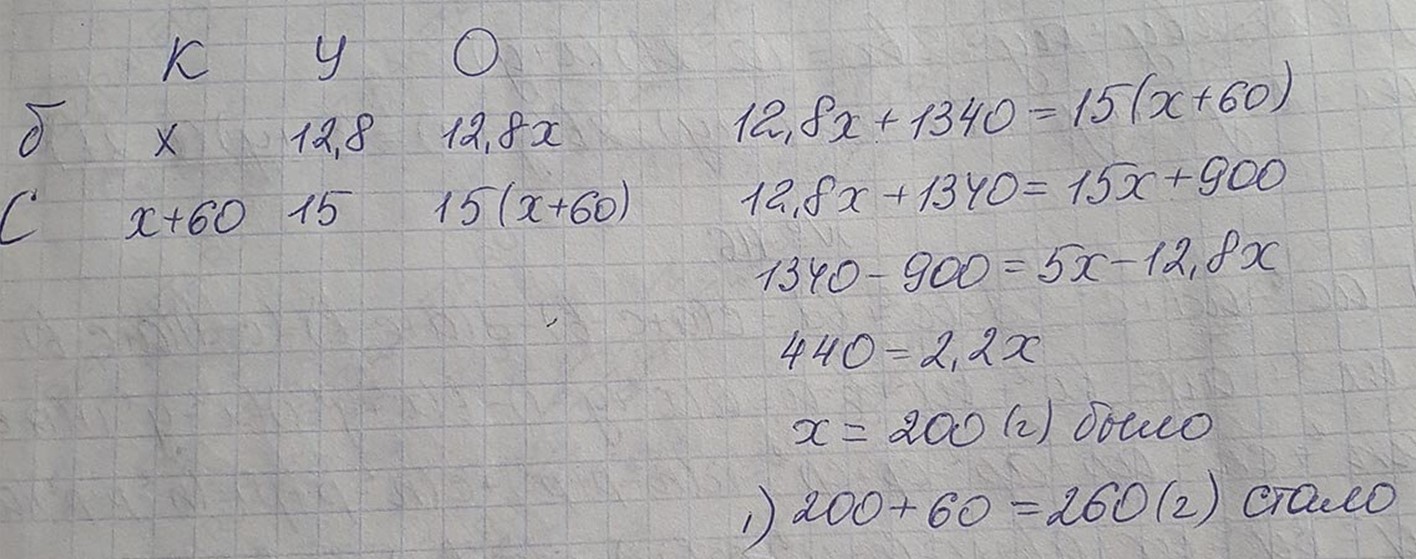 К У О
б х 12,8 12,8х
С х+60 15 15(х+60)
12,8х + 1340 = 15(х+60)
12,8х + 1340 = 15х + 900
1340 - 900 = 5х - 12,8х
440 = 2,2х
х = 200 (г) было
1) 200 + 60 = 260 (г) стало